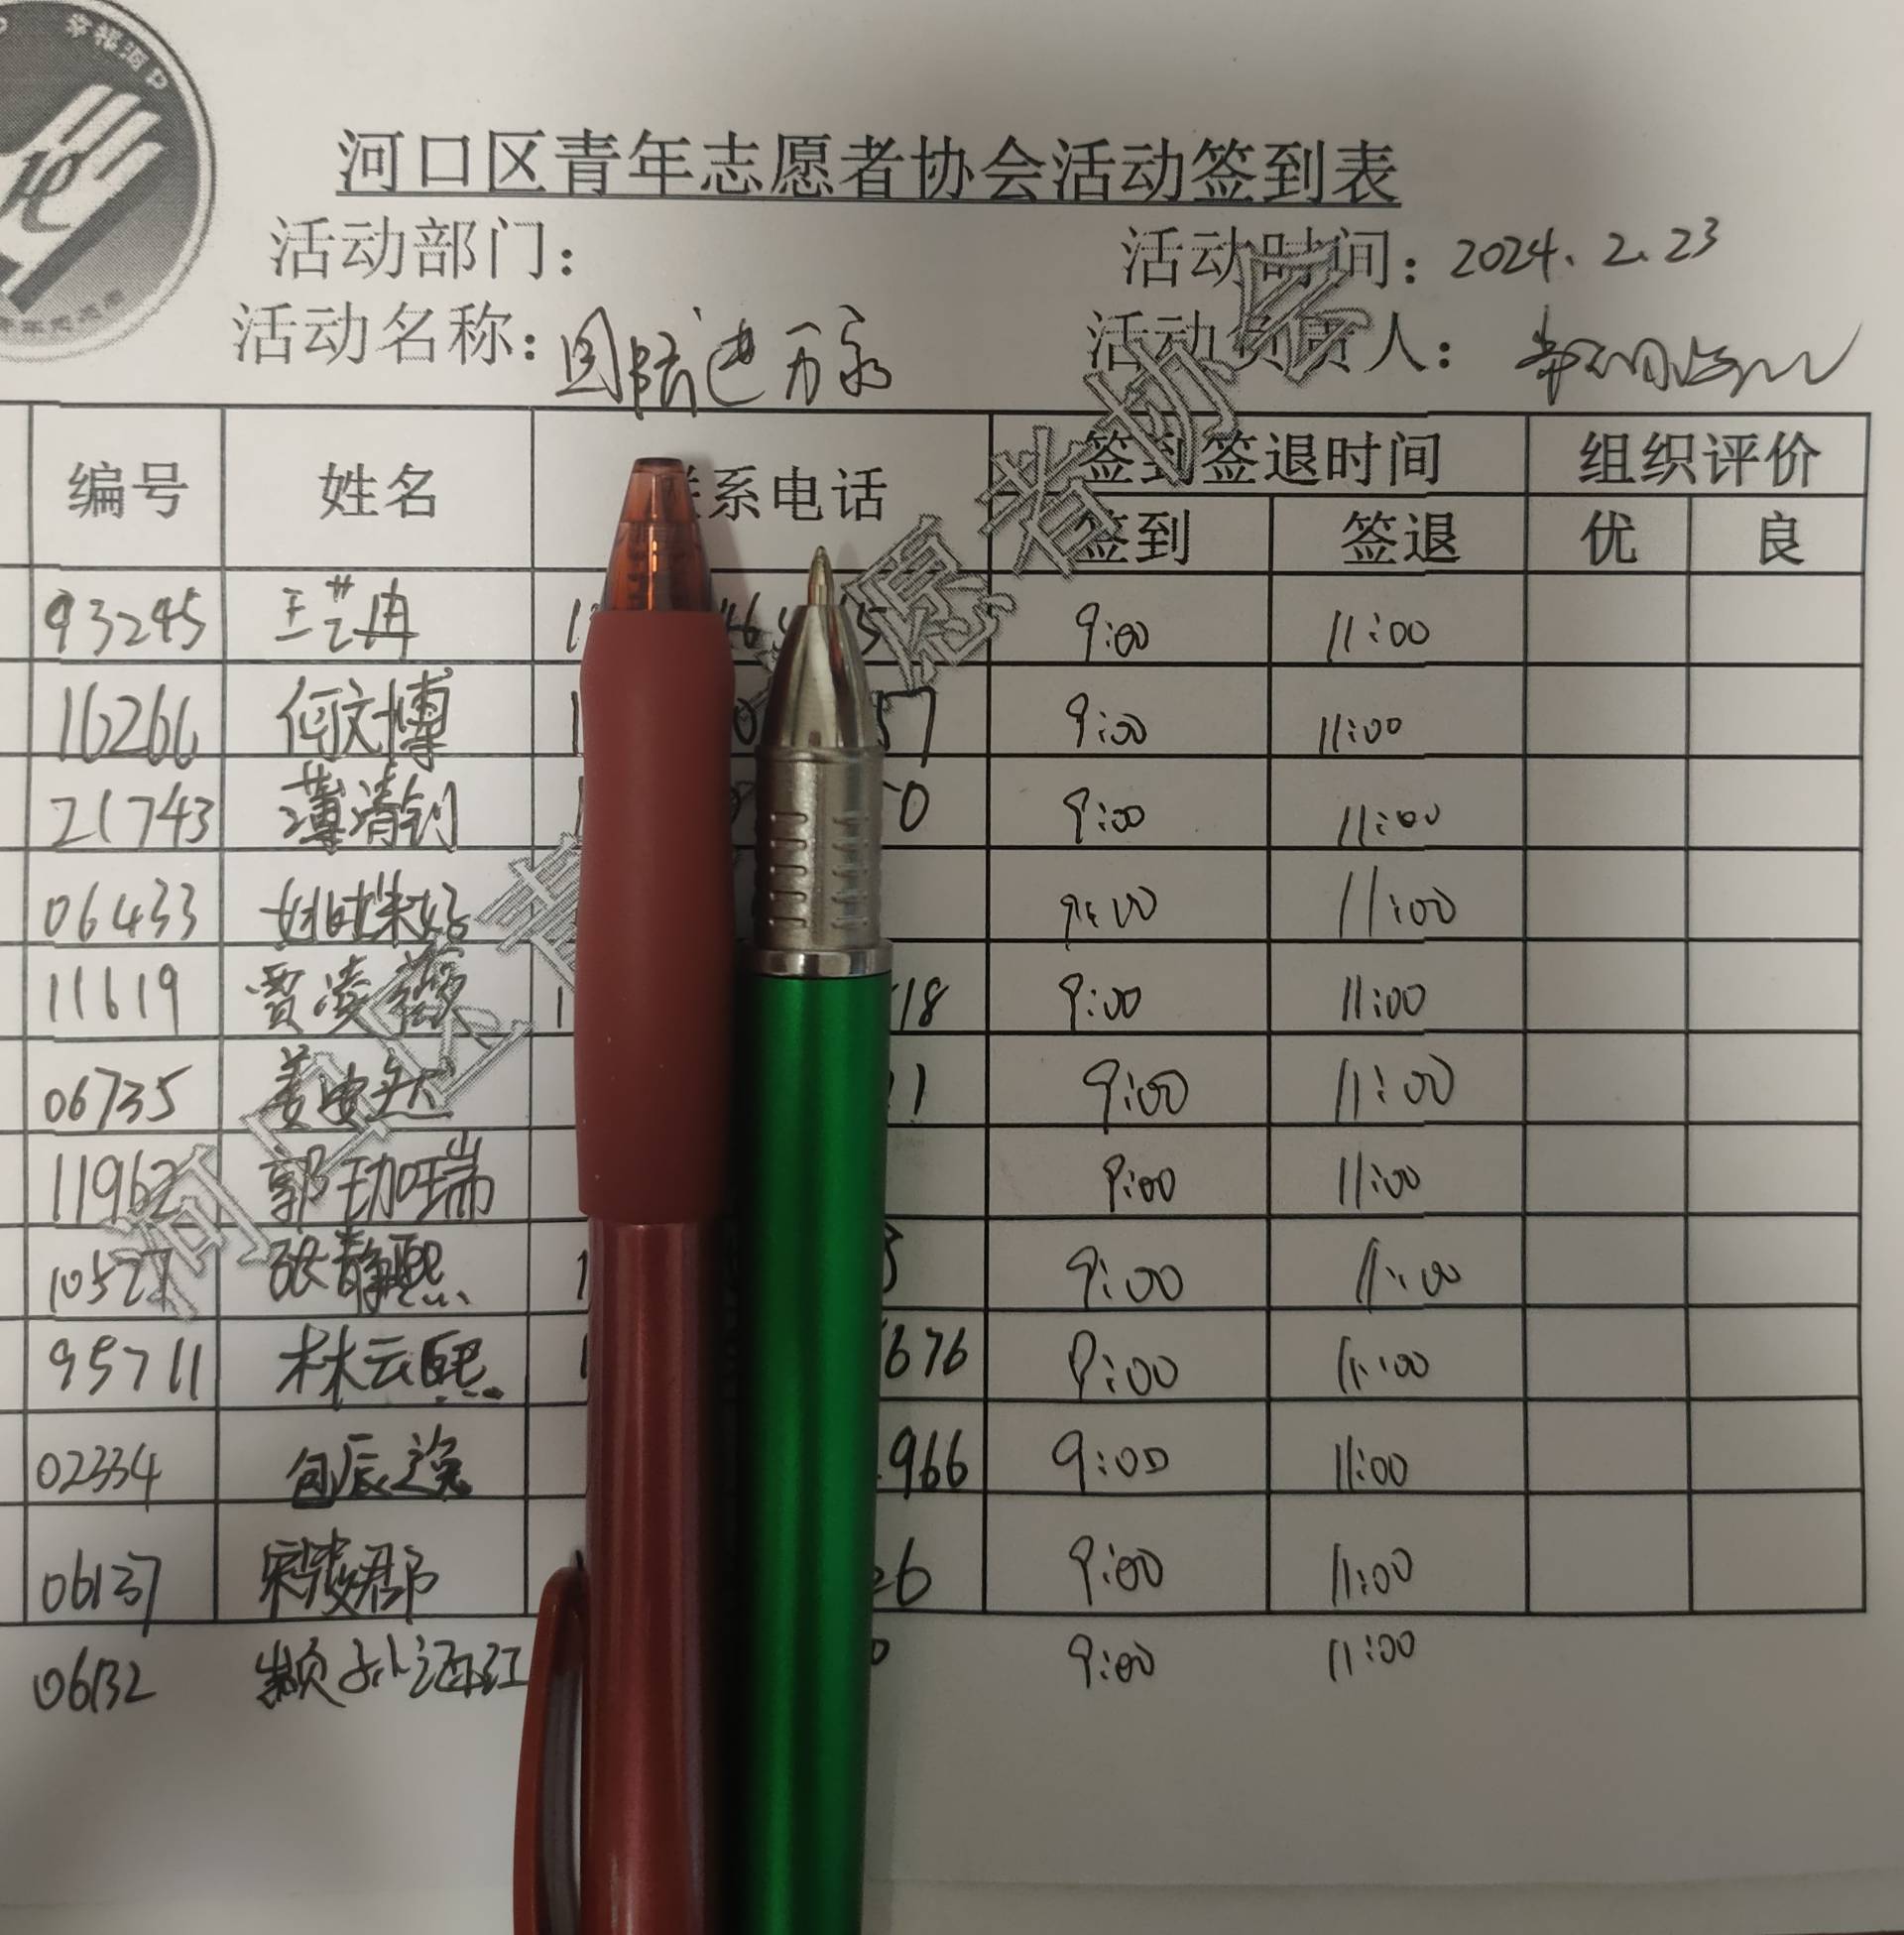 河口区青年志愿者协会活动签到表
活动部门： 活动时间：2024.2.23
活动名称：团队进万家 活动负责人：
编号 姓名 系电话 签到签退时间 组织评价
签到 签退 优 良
93245 王艺冉 9:00 11:00
16266 何文博 57 9:00 11:00
21743 薄清钊 0 9:00 11:00
06433 9:00 11:00
11619 贾凌薇 18 9:00 11:00
06735 姜忠 11 9:00 11:00
11962 郭珈瑞 9:00 11:00
10527 张静熙 9:00 11:00
95711 林云熙 676 9:00 11:00
02334 包辰逸 966 9:00 11:00
06137 宋骏郡 26 9:00 11:00
06132 9:00 11:00
河口区青 愿者协会